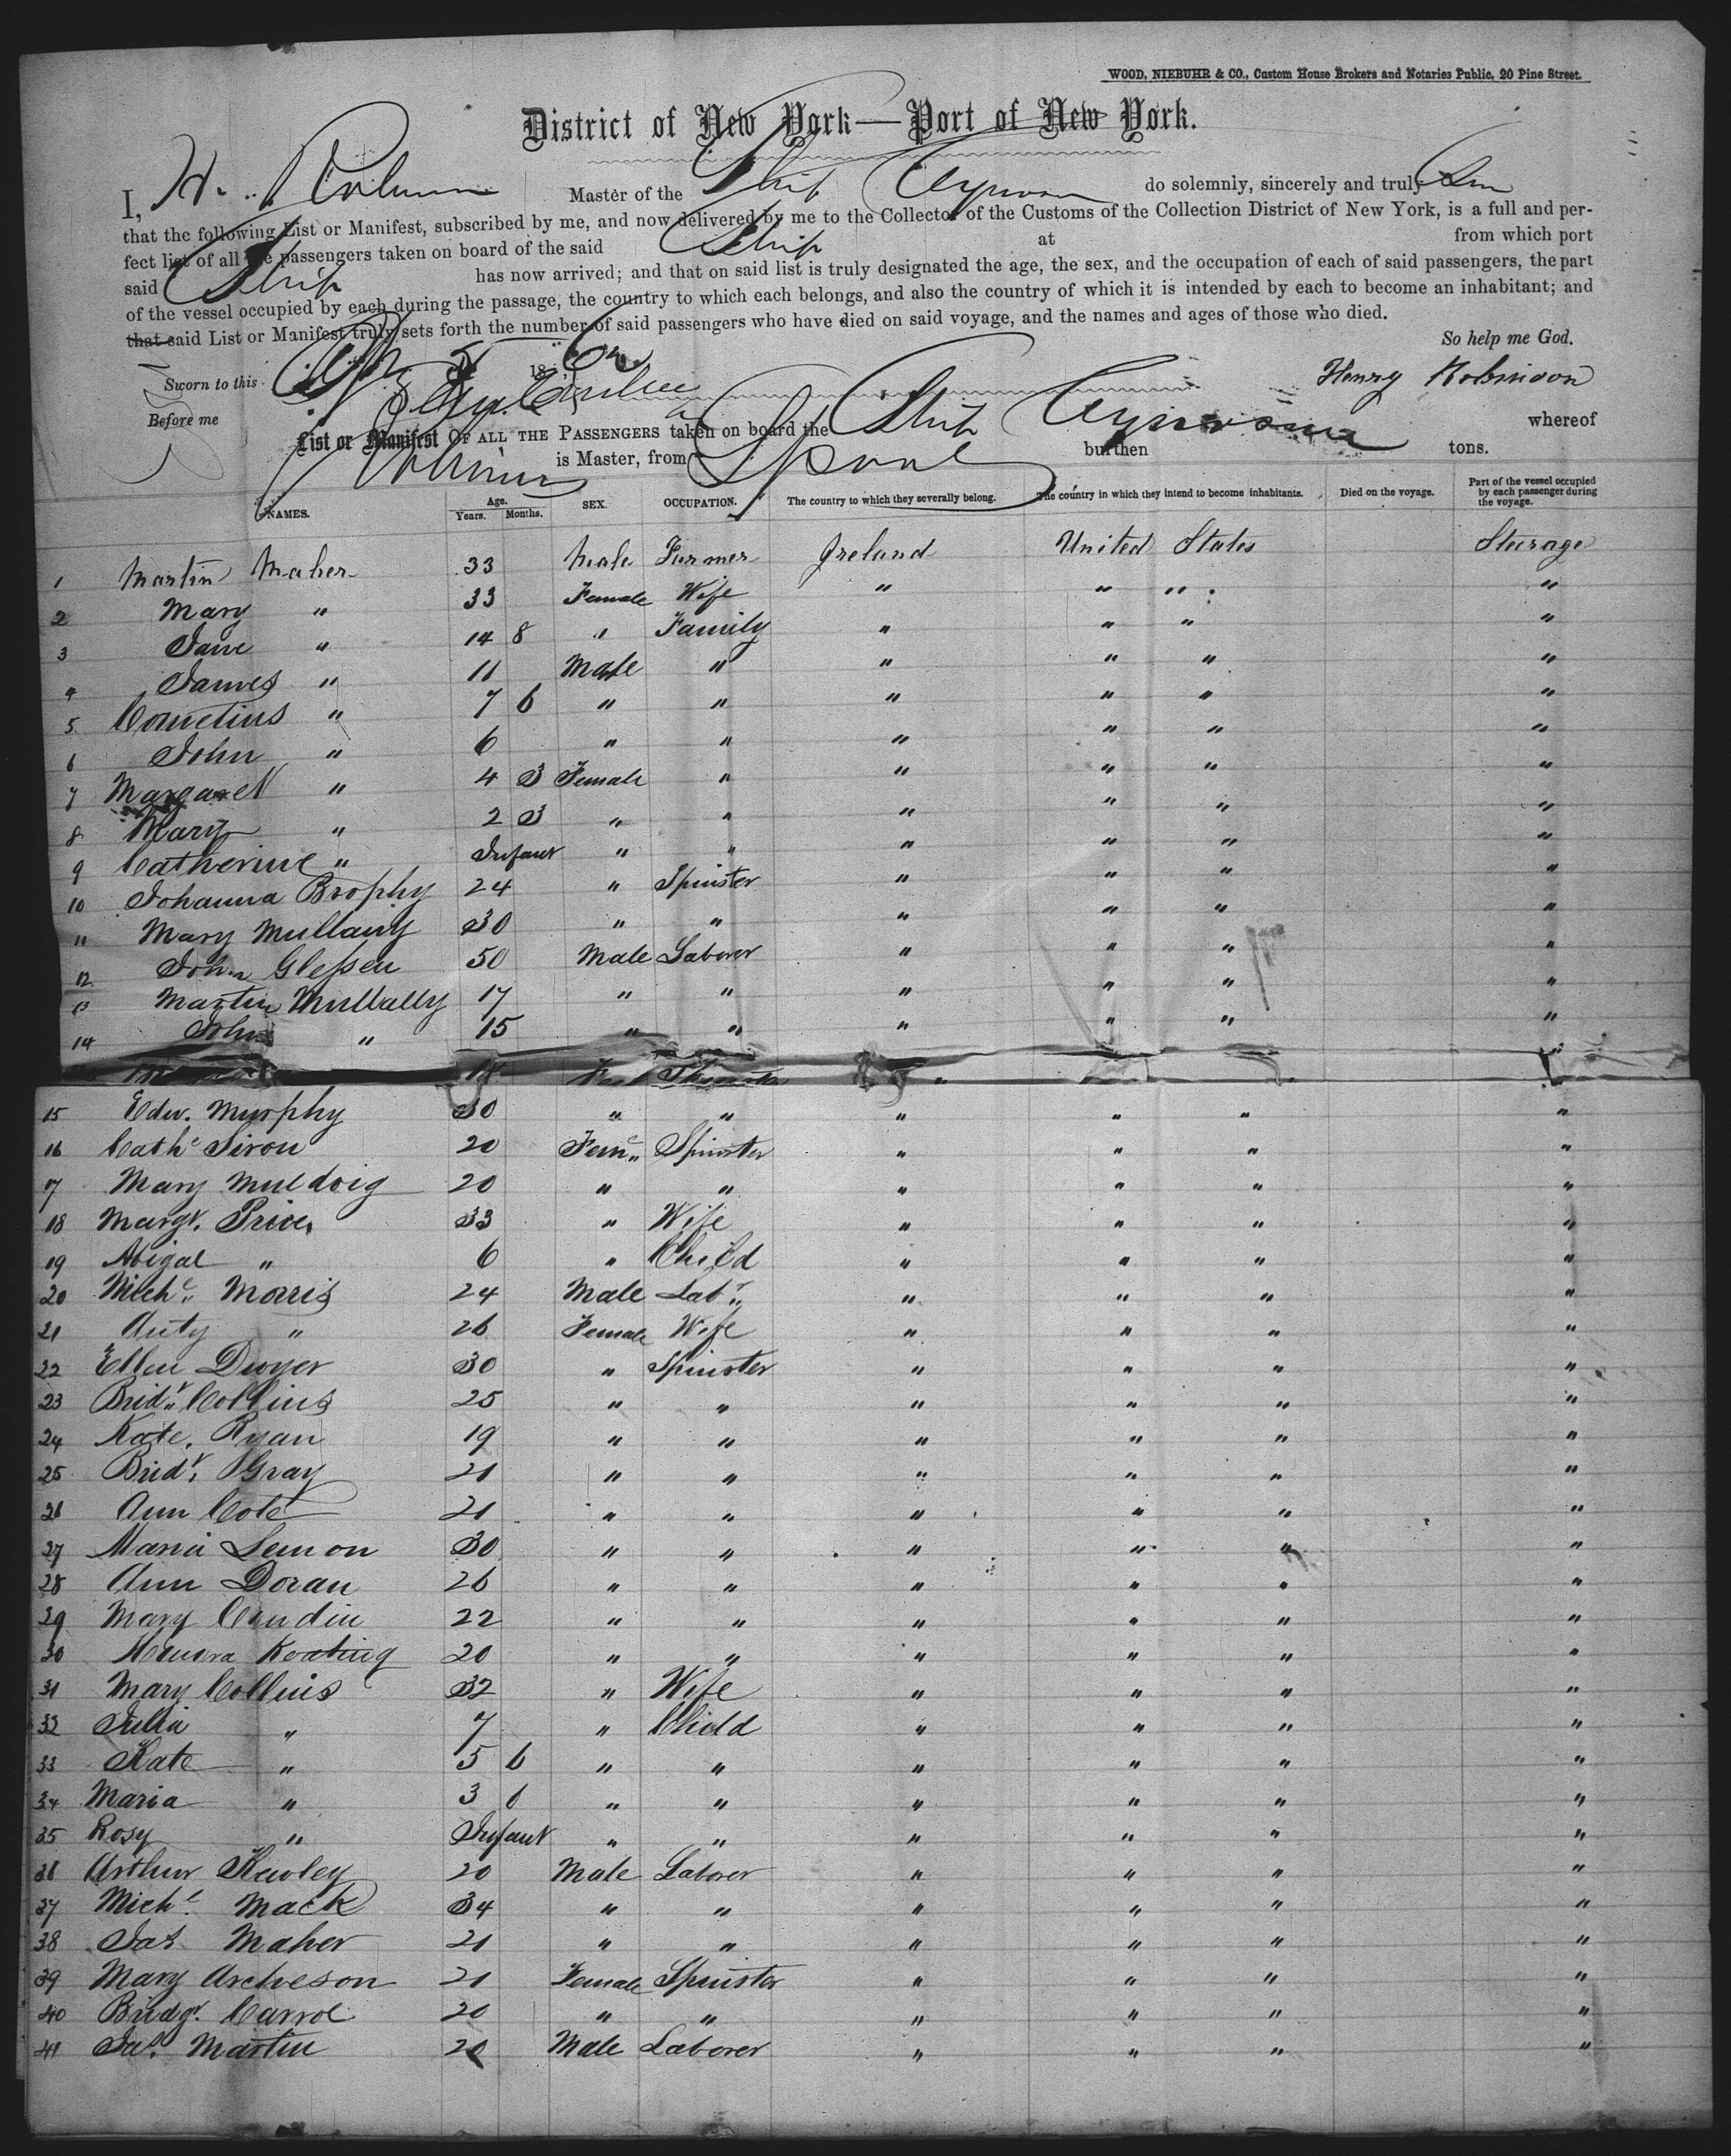 WOOD, NIEBUHR & CO., Custom House Brokers and Notaries Public, 20 Pine Street.
District of New York—Port of New York.
I, H. Robinson Master of the Ship Cynosure do solemnly, sincerely and truly
that the following List or Manifest, subscribed by me, and now delivered by me to the Collector of the Customs of the Collection District of New York, is a full and per-
fect list of all the passengers taken on board of the said Ship at from which port
said Ship has now arrived; and that on said list is truly designated the age, the sex, and the occupation of each of said passengers, the part
of the vessel occupied by each during the passage, the country to which each belongs, and also the country of which it is intended by each to become an inhabitant; and
that said List or Manifest truly sets forth the number of said passengers who have died on said voyage, and the names and ages of those who died.
So help me God.
Sworn to this 18
Henry Robinson
Before me
List or Manifest OF ALL THE PASSENGERS taken on board the Ship Cynosure whereof
Robinson is Master, from burthen tons.
NAMES. Age. Years. Months. SEX. OCCUPATION. The country to which they severally belong. The country in which they intend to become inhabitants. Died on the voyage. Part of the vessel occupied by each passenger during the voyage.
1 Martin Maher 33 Male Farmer Ireland United States Steerage
2 Mary " 33 Female Wife " " " "
3 Jane " 14 8 " Family " " " "
4 James " 11 Male " " " " "
5 Cornelius " 7 6 " " " " " "
6 John " 6 " " " " " "
7 Margaret " 4 3 Female " " " " "
8 Mary " 2 3 " " " " " "
9 Catherine " Infant " " " " " "
10 Johanna Brophy 24 " Spinster " " " "
11 Mary Mullany 30 " " " " " "
12 John Glessen 50 Male Laborer " " " "
13 Martin Mullally 17 " " " " " "
14 John " 15 " " " " " "
15 Edw. Murphy 30 " " " " " "
16 Cathe Siron 20 Feme Spinster " " " "
17 Mary Muldoig 20 " " " " " "
18 Margt. Price 33 " Wife " " " "
19 Abigal " 6 " Child " " " "
20 Michl. Morris 24 Male Labr " " " "
21 Anty " 26 Female Wife " " " "
22 Ellen Dwyer 30 " Spinster " " " "
23 Bridt Collins 25 " " " " " "
24 Kate. Ryan 19 " " " " " "
25 Bridt. Gray 21 " " " " " "
26 Ann Cote 21 " " " " " "
27 Maria Lemon 30 " " " " " "
28 Ann Doran 26 " " " " " "
29 Mary Condin 22 " " " " " "
30 Honora Keating 20 " " " " " "
31 Mary Collins 32 " Wife " " " "
32 Julia " 7 " Child " " " "
33 Kate " 5 6 " " " " " "
34 Maria " 3 6 " " " " " "
35 Rosy " Infant " " " " " "
36 Arthur Kewley 20 Male Laborer " " " "
37 Michl. Mack 34 " " " " " "
38 Jas Maher 21 " " " " " "
39 Mary Archeson 21 Female Spinster " " " "
40 Bridgt. Carrol 20 " " " " " "
41 Jas. Martin 20 Male Laborer " " " "